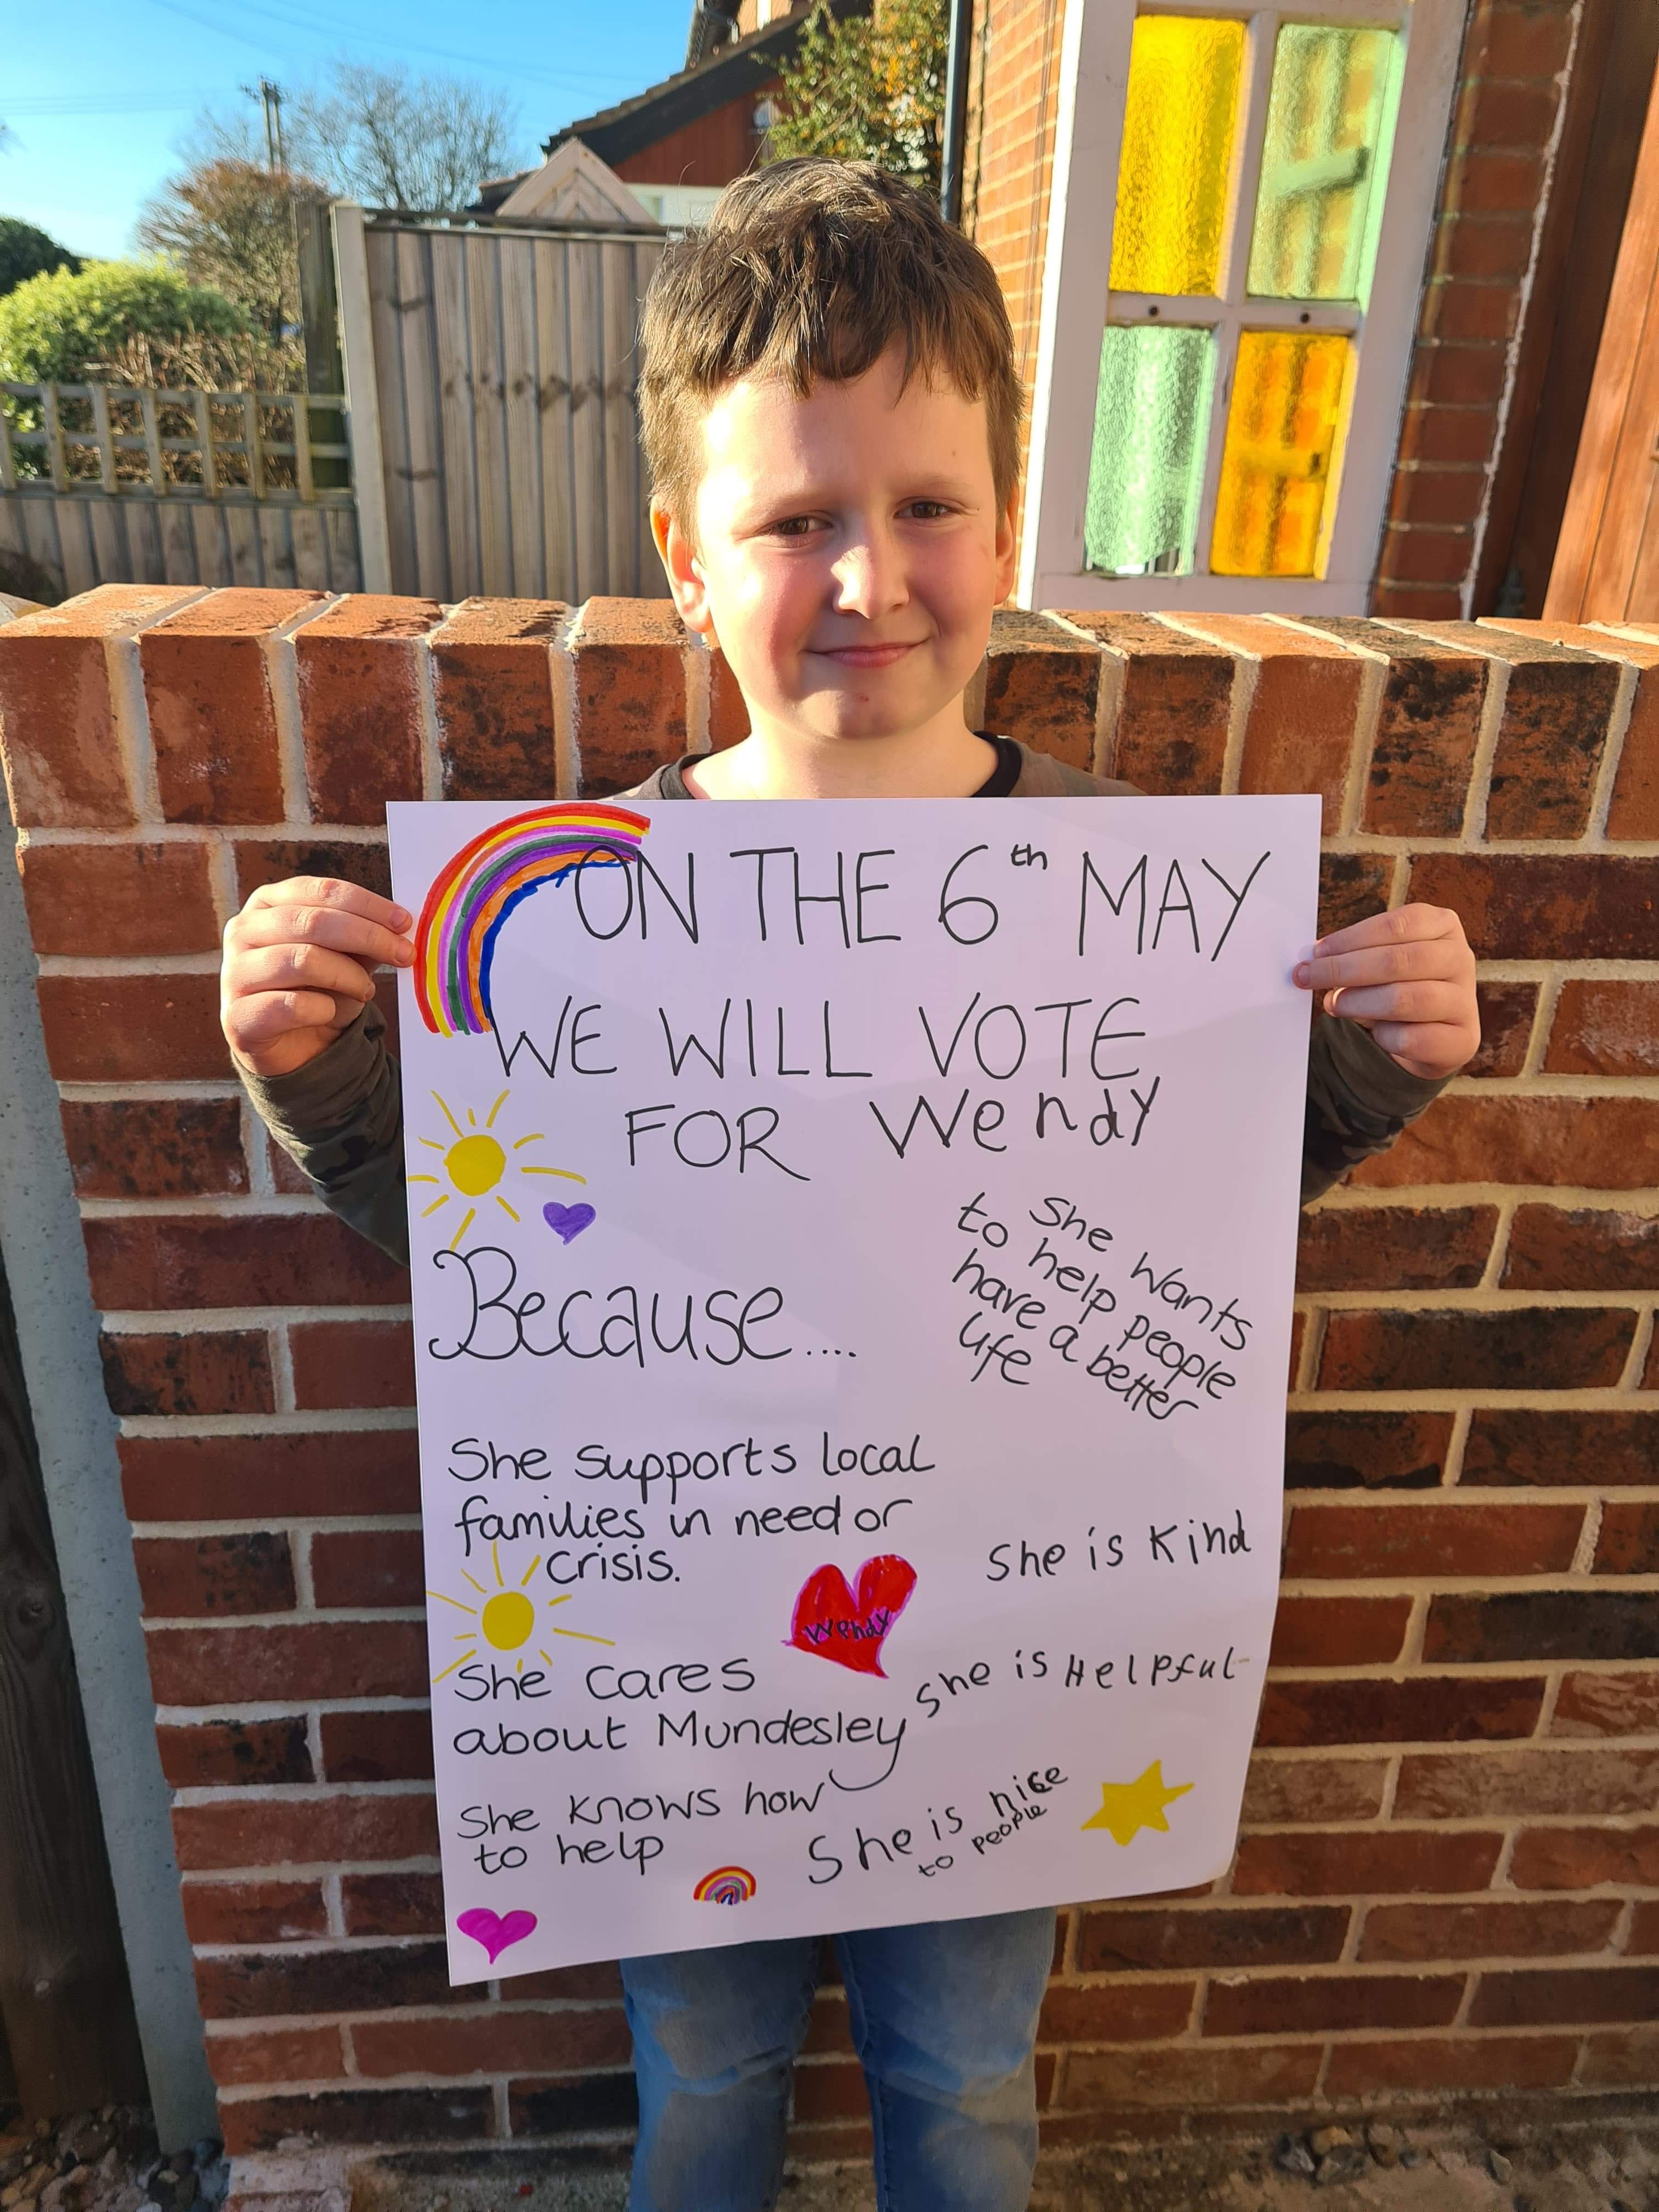 ON THE 6th MAY
WE WILL VOTE
FOR Wendy
Because....
She wants
to help people
have a better
life
She supports local
families in need or
crisis.
She is Kind
Wendy
She cares
about Mundesley
She is Helpful
She knows how
to help
She is nice
to people